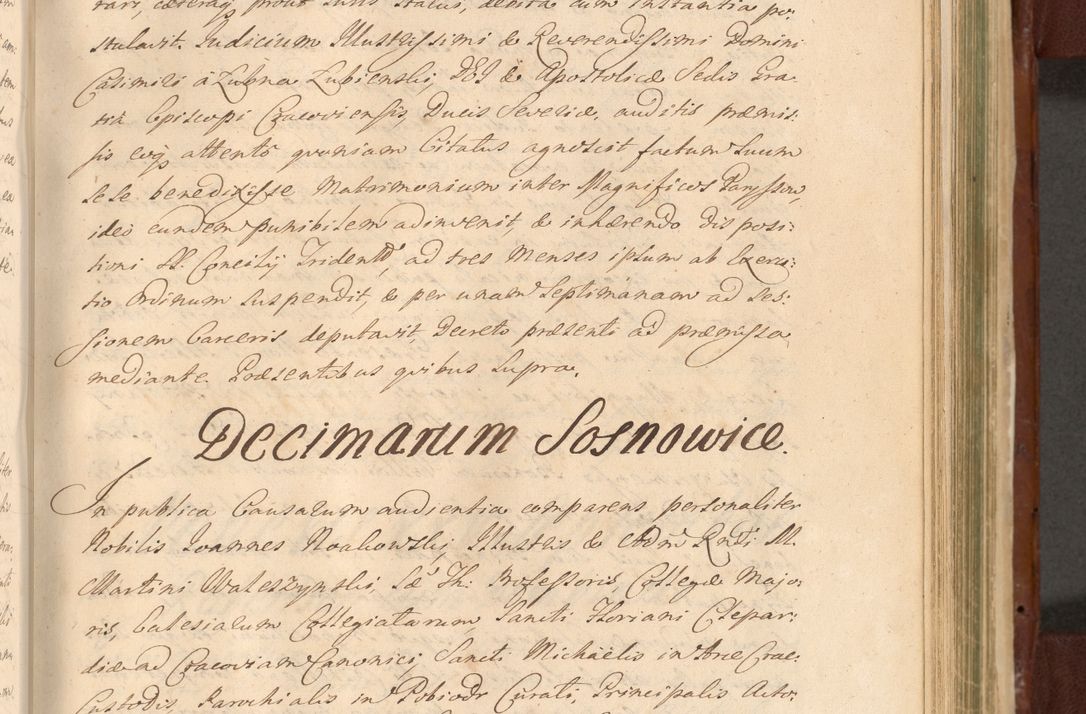 rari, cæteraq, prout Juris Status, debita cum Instantia po:
stulavit. Iudicium Illustrissimi & Reverendissimi Domini
Casimiri à Łubna Łubienski, DEI & Apostolicæ Sedis Gra
tiâ Episcopi Cracoviensis, Ducis Severiæ, auditis præmis:
sis eoq attentô quoniam Citatus agnoscit factum Suum
sese benedixisse Matrimonium inter Magnificos Paryssow,
ideo eundem punibilem adinvenit, & inhærendo dis posi:
tioni SS. Concilij Trident, ad tres Menses ipsum ab Execu:
tio Ordinum Suspendit, & per unam Septimanam ad Ses:
sionem Carceris deputavit, Decreto præsenti ad præmissa
mediante. Præsentibus quibus Supra.
Decimarum Sosnowice.
In publica Causarum audientia comparens personaliter
Nobilis Joannes Noakowskij Illustris & Adm Rndi M.
Martini Waleszynski, Sæ Th: Professoris, Collegæ Majo:
ris, Eclesiarum Collegiatarum Sancti Floriani Clepar:
diæ ad Cracoviam Canonici, Sancti Michaëlis in Arce Crac:
Custodis, Parochialis in Pobiedr Curati, Principalis Acto: